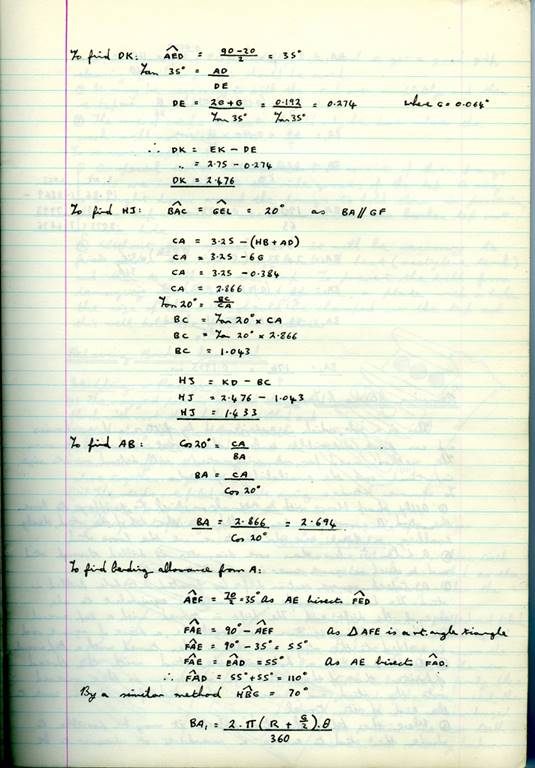 To find DK: AÊD = 90-20/2 = 35°
Tan 35° = AD/DE
DE = 2G+G/Tan 35° = 0.192/Tan 35° = 0.274 where G = 0.064"
∴ DK = EK - DE
" = 2.75 - 0.274
DK = 2.476
To find HJ: BÂC = GÊL = 20° as BA//GF
CA = 3.25 - (HB + AD)
CA = 3.25 - 6G
CA = 3.25 - 0.384
CA = 2.866
Tan 20° = BC/CA
BC = Tan 20° × CA
BC = Tan 20° × 2.866
BC = 1.043
HJ = KD - BC
HJ = 2.476 - 1.043
HJ = 1.433
To find AB: Cos 20° = CA/BA
BA = CA/Cos 20°
BA = 2.866/Cos 20° = 2.694
To find bending allowance from A:
AÊF = 70/2 = 35° as AE bisects FÊD
FÂE = 90° - AÊF as △AFE is a rt. angle triangle
FÂE = 90° - 35° = 55°
FÂE = EÂD = 55° As AE bisect FÂD.
∴ FÂD = 55° + 55° = 110°
By a similar method HB̂G = 70°
BA₁ = 2.π(R + G/2).θ/360